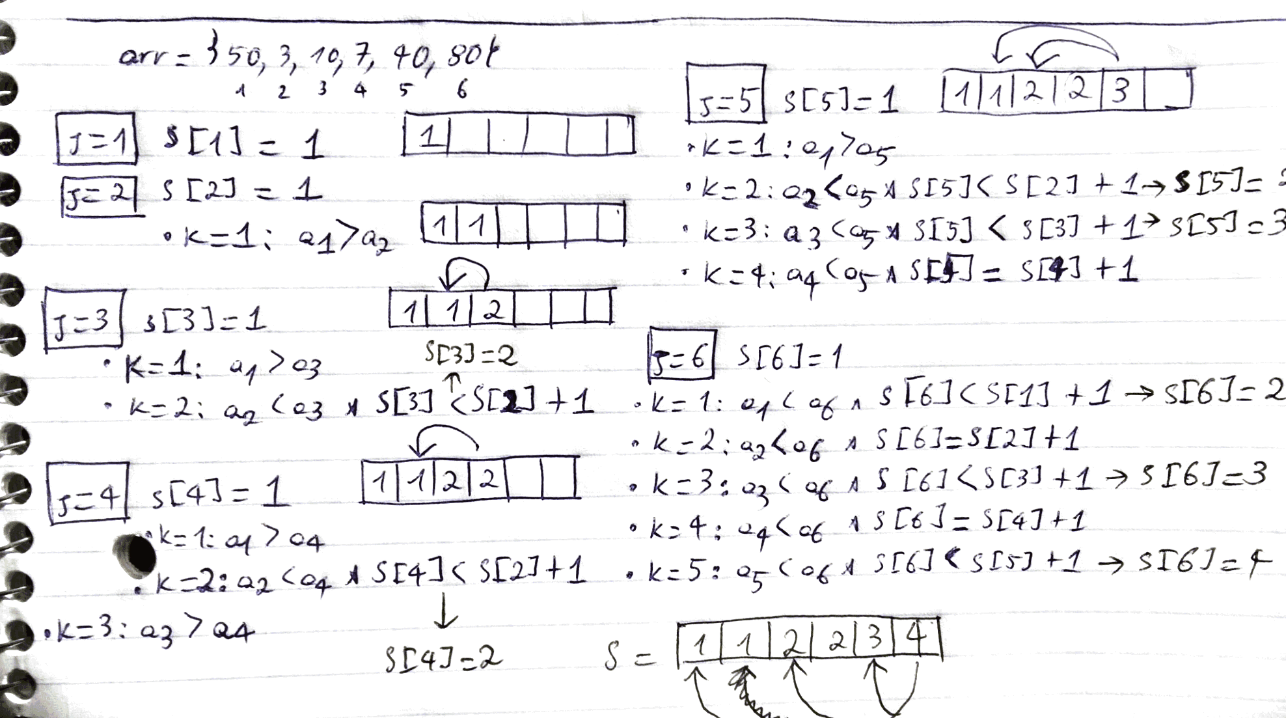 arr = {50, 3, 10, 7, 40, 80}
1 2 3 4 5 6
J=1 S[1] = 1
1
J=2 S[2] = 1
• K=1: a1>a2
1 1
J=3 S[3]=1
1 1 2
• K=1: a1>a3
S[3]=2
• K=2: a2<a3 ∧ S[3]<S[2]+1
J=4 S[4]=1
1 1 2 2
• K=1: a1>a4
• K=2: a2<a4 ∧ S[4]<S[2]+1
• K=3: a3>a4
S[4]=2
J=5 S[5]=1
1 1 2 2 3
• K=1: a1>a5
• K=2: a2<a5 ∧ S[5]<S[2]+1→S[5]=
• K=3: a3<a5 ∧ S[5]<S[3]+1→S[5]=3
• K=4: a4<a5 ∧ S[5]=S[4]+1
J=6 S[6]=1
• K=1: a1<a6 ∧ S[6]<S[1]+1→S[6]=2
• K=2: a2<a6 ∧ S[6]=S[2]+1
• K=3: a3<a6 ∧ S[6]<S[3]+1→S[6]=3
• K=4: a4<a6 ∧ S[6]=S[4]+1
• K=5: a5<a6 ∧ S[6]<S[5]+1→S[6]=4
S = 1 1 2 2 3 4